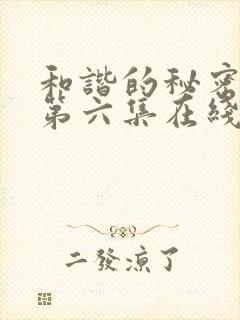 和諧的秘密
第六集在綫
二發涼了